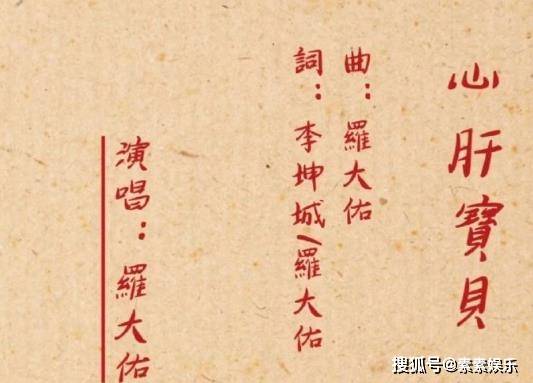 心肝寶貝
曲：羅大佑
詞：李坤城/羅大佑
演唱：羅大佑
搜狐号@素素娱乐